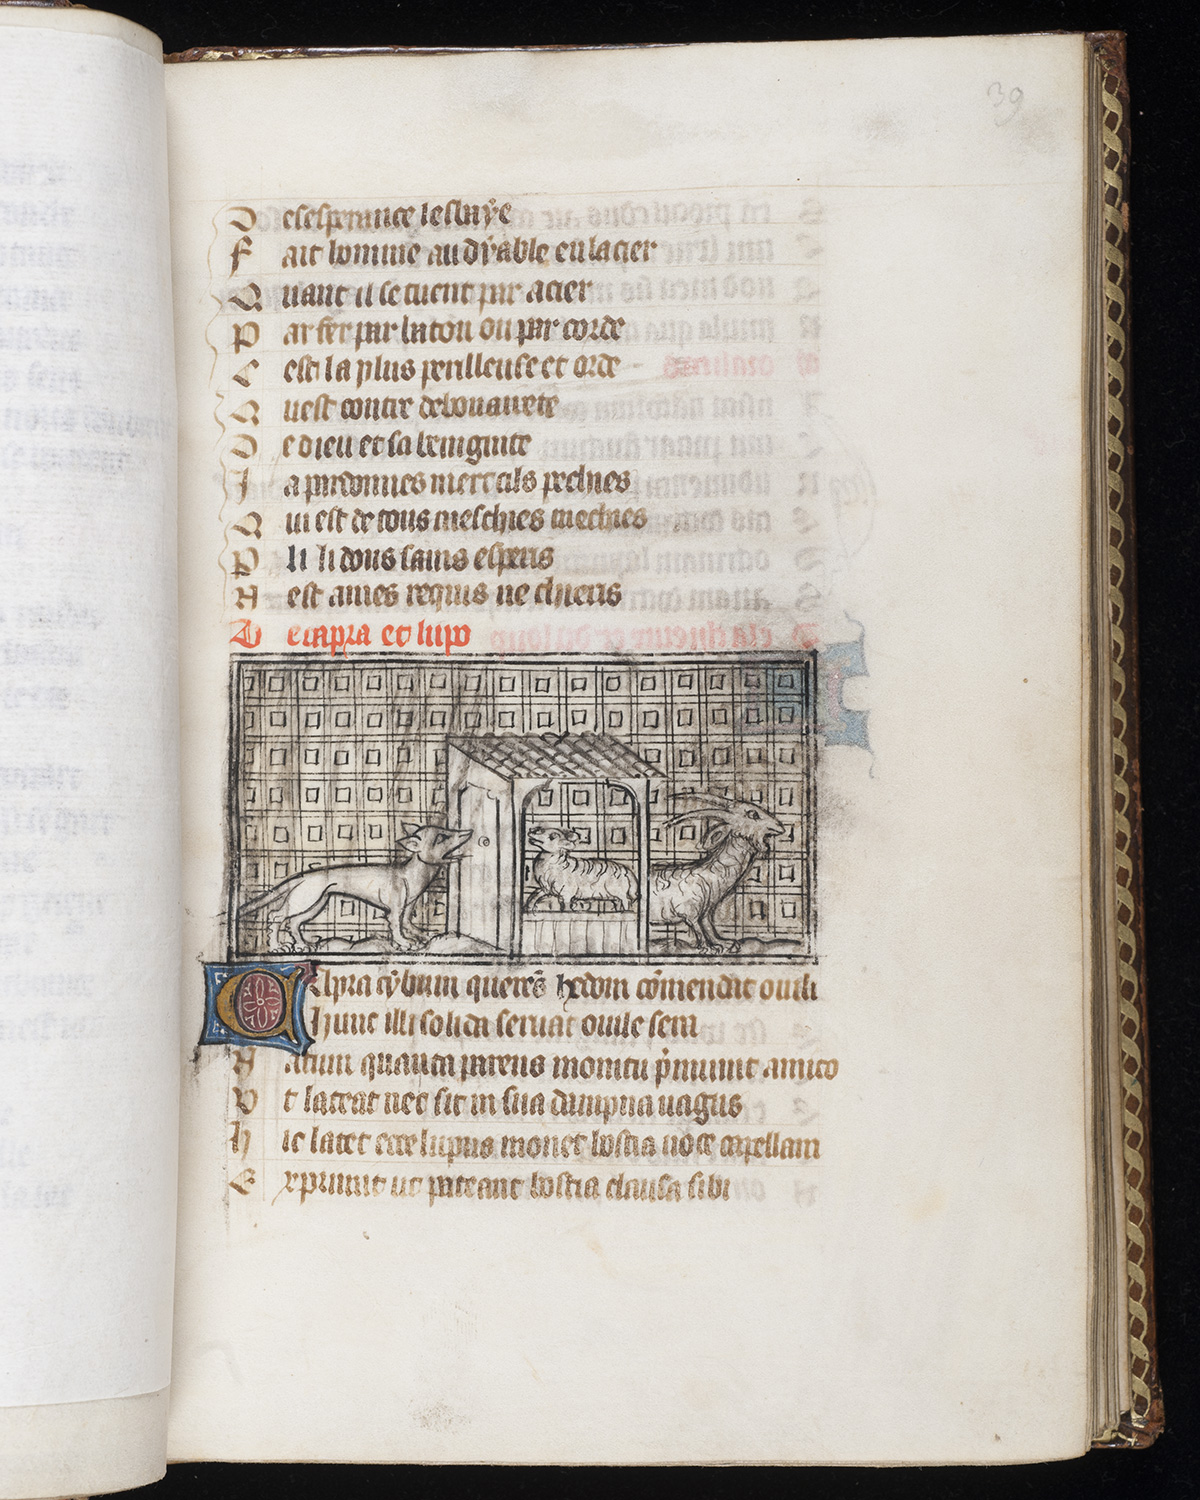 39
Desesperance les laye
Fait homme au dyable enlacier
Quant il se tuent par acier
Par fer par laton ou par corde
Cest la plus perilleuse et orde
Quest contre debonairete
De dieu et sa benignite
Ja pardonnes mertels pechies
Qui est de tous meschies
Pli li dous sains esperis
Nest amés requis ne chieris
De capra et lupo
Capra cybum querēs hedum cōmendat ouili
hunc illi solida seruat ouile sera
Natum quauta parens monitu p̄muniit amico
Vt lateat nec sit in sua dampna uagus
hic latet ecce lupus mouet hostia uoce capellam
Exprimit ut pateant hostia clausa sibi